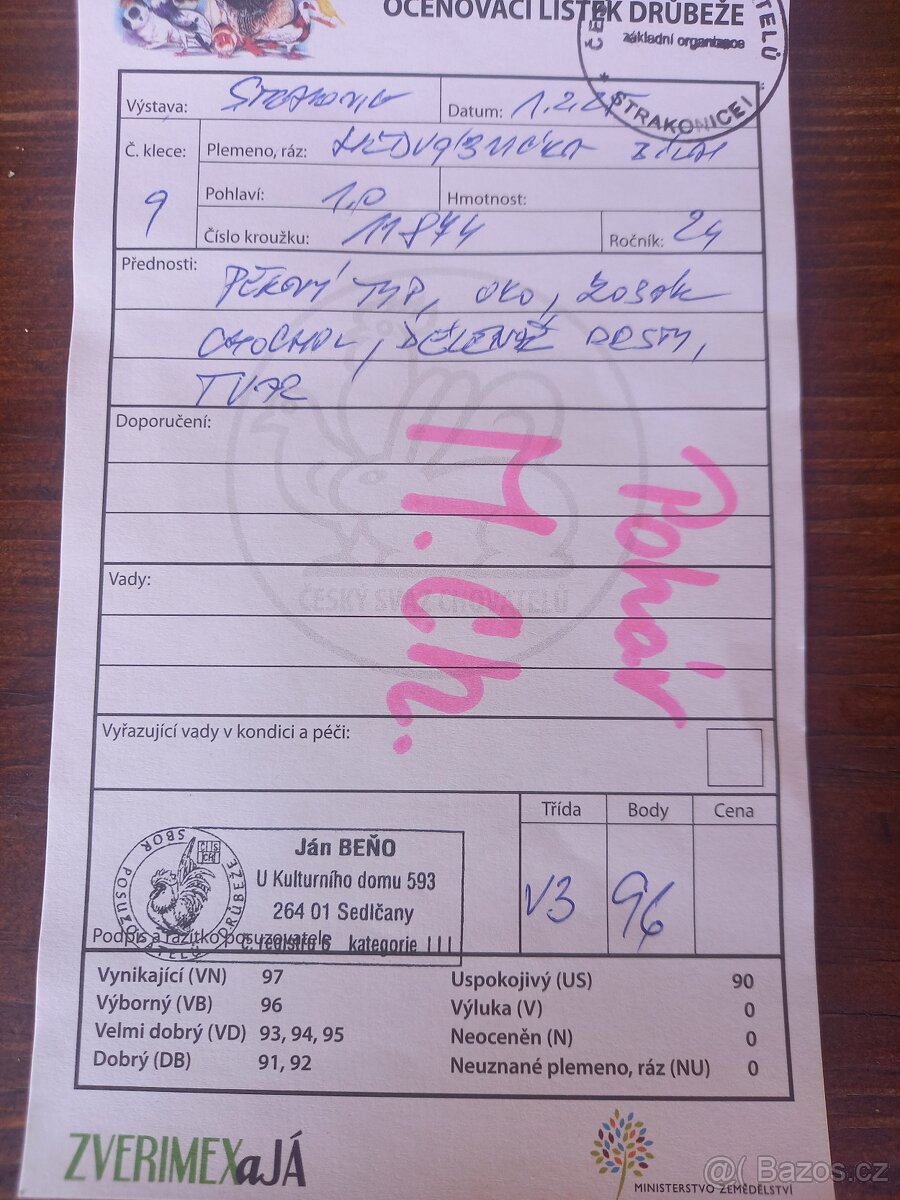 OCEŇOVACÍ LÍSTEK DRŮBEŽE
základní organizace
STRAKONICE I
Výstava: Strakonice Datum: 1.2.25
Č. klece: 9
Plemeno, ráz: HEDVÁBNIČKA BÍLÁ
Pohlaví: 1,0 Hmotnost:
Číslo kroužku: 11874 Ročník: 24
Přednosti: PĚKNÝ TYP, OKO, ZOBÁK
CHOCHOL, PRSTY,
TVAR
Doporučení:
M. Ch.
Pohár
Vady:
ČESKÝ SVAZ CHOVATELŮ
Vyřazující vady v kondici a péči:
Třída Body Cena
V3 96
SBOR POSUZOVATELŮ DRŮBEŽE
Ján BEŇO
U Kulturního domu 593
264 01 Sedlčany
č. registru 6 kategorie III
Podpis a razítko posuzovatele
Vynikající (VN) 97
Výborný (VB) 96
Velmi dobrý (VD) 93, 94, 95
Dobrý (DB) 91, 92
Uspokojivý (US) 90
Výluka (V) 0
Neoceněn (N) 0
Neuznané plemeno, ráz (NU) 0
ZVERIMEXaJÁ
MINISTERSTVO ZEMĚDĚLSTVÍ
@( Bazos.cz